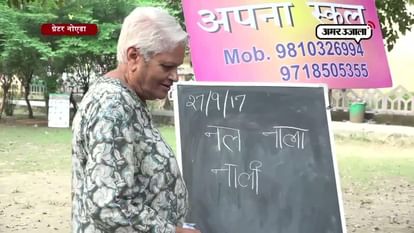 ग्रेटर नोएडा
अमर उजाला
अपना स्कूल
Mob. 9810326994
9718505355
27/9/17
नल नाला
नाली